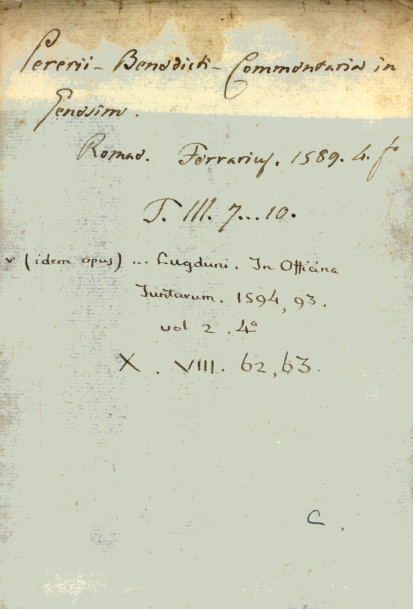 Pererii - Benedicti - Commentaria in
Genesim.
Romae. Ferrarius. 1589. 4. fo
T. III. 7...10.
v (idem opus) ... Lugduni. In Officina
Juntarum. 1594, 93.
vol 2. 4°
X. VIII. 62, 63.
C.